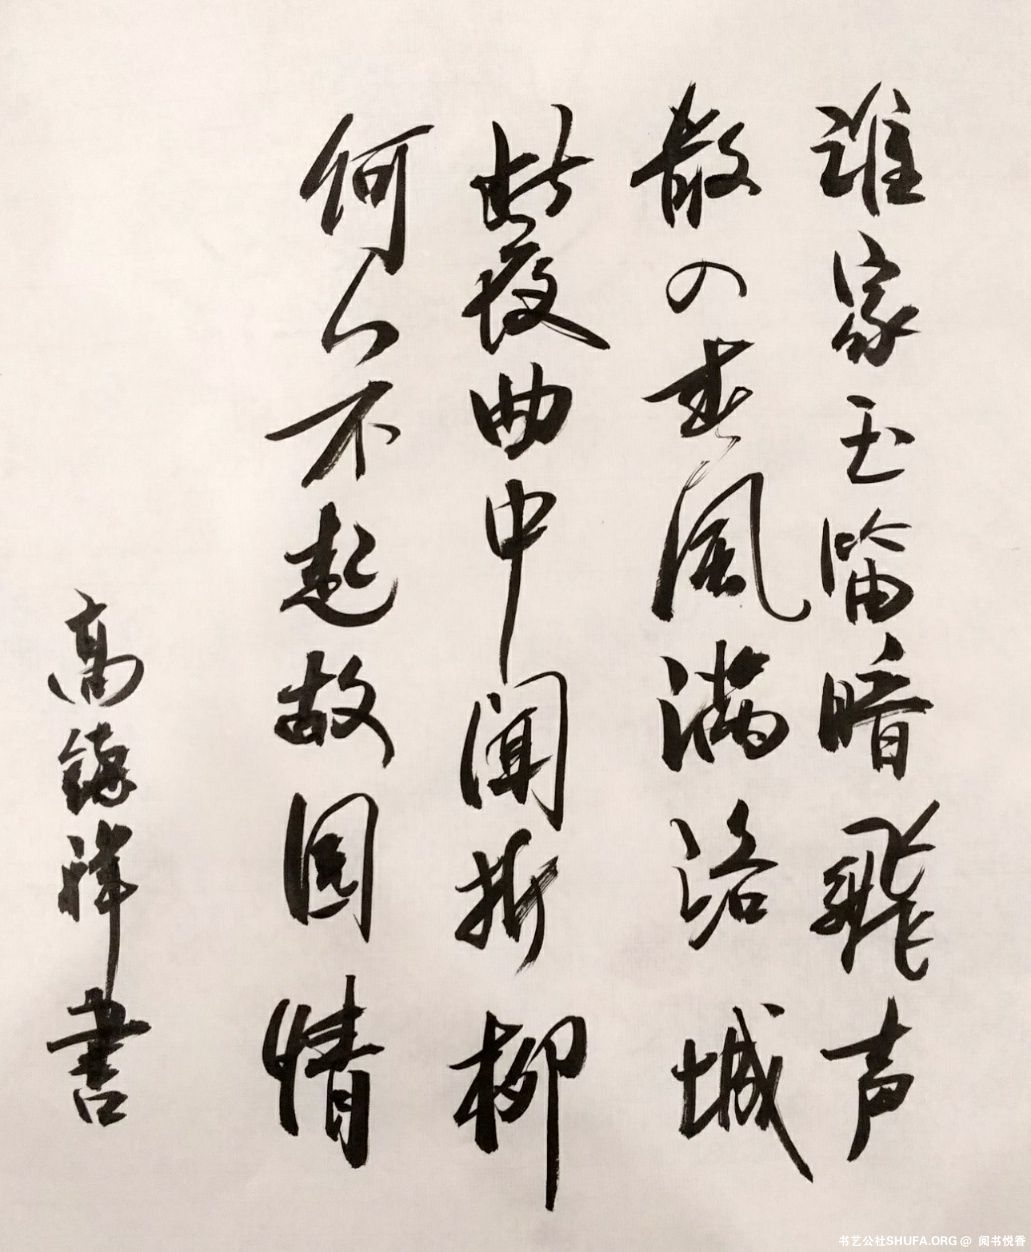 谁家玉笛暗飛声
散入春风满洛城
此夜曲中闻折柳
何人不起故园情
高德祥书
书艺公社SHUFA.ORG @ 阅书悦香